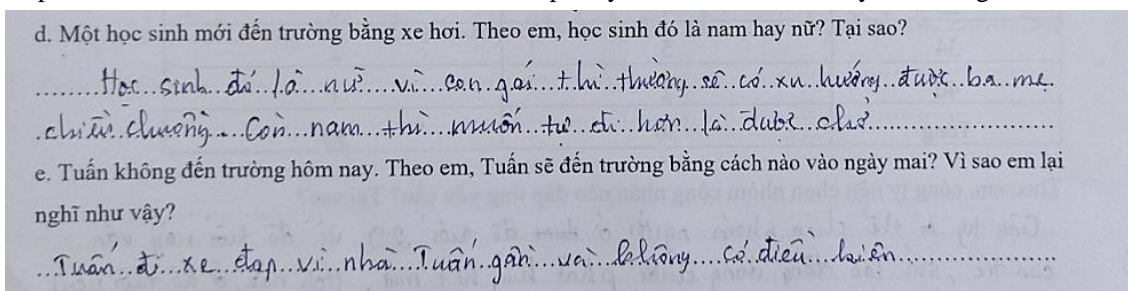 d. Một học sinh mới đến trường bằng xe hơi. Theo em, học sinh đó là nam hay nữ? Tại sao?
Học sinh đó là nữ vì con gái thì thường sẽ có xu hướng được ba mẹ
chiều chuộng. Còn nam thì muốn tự đi hơn là được chở
e. Tuấn không đến trường hôm nay. Theo em, Tuấn sẽ đến trường bằng cách nào vào ngày mai? Vì sao em lại
nghĩ như vậy?
Tuấn đi xe đạp vì nhà Tuấn gần và không có điều kiện